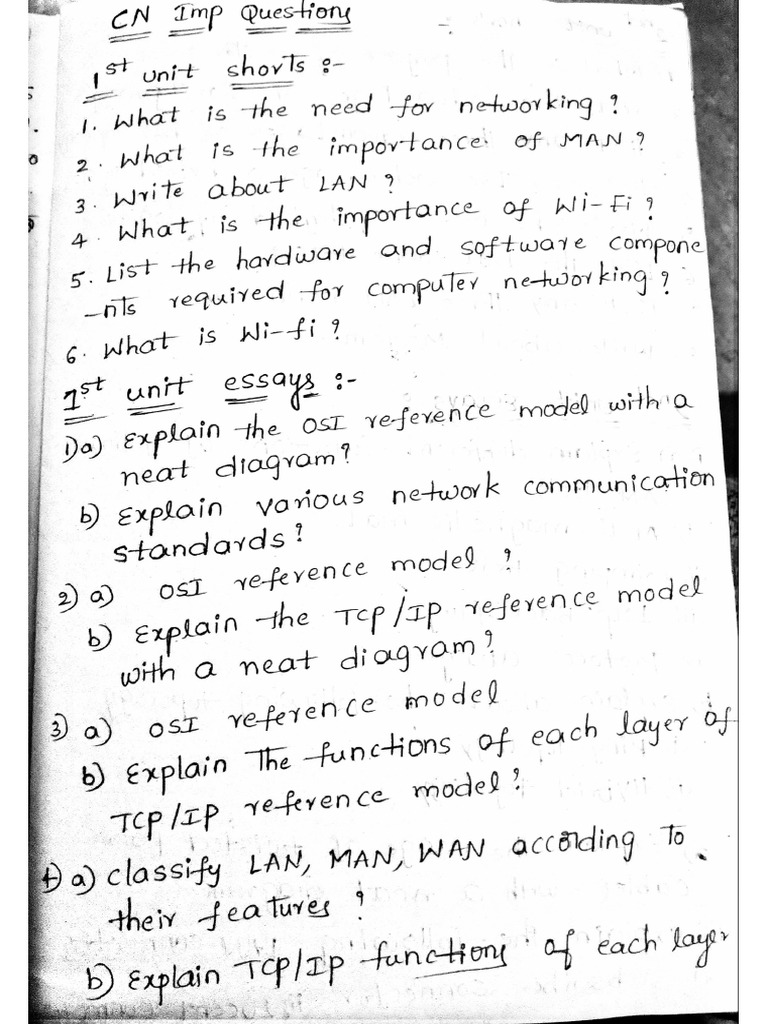 CN Imp Questions
1st unit shorts :-
1. What is the need for networking ?
2. What is the importance of MAN ?
3. Write about LAN ?
4. What is the importance of Wi-Fi ?
5. List the hardware and software compone
-nts required for computer networking ?
6. What is Wi-fi ?
1st unit essays :-
1) a) Explain the OSI reference model with a
neat diagram?
b) Explain various network communication
standards?
2) a) OSI reference model ?
b) Explain the TCP/IP reference model
with a neat diagram?
3) a) OSI reference model
b) Explain The functions of each layer of
TCP/IP reference model?
4) a) classify LAN, MAN, WAN according To
their features ?
b) Explain TCP/IP functions of each layer